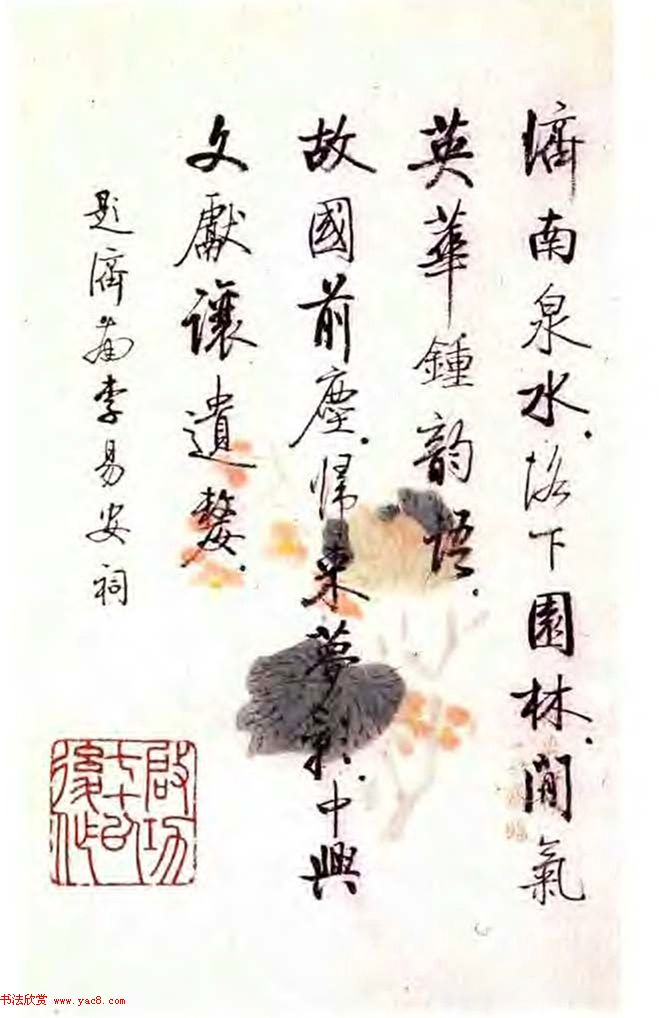 濟南泉水.洛下園林.閒氣
英華鍾韵語.
故國前塵.歸來夢影.中興
文獻讓遺嫠.
題濟南李易安祠
啟功
七十以
後作
书法欣赏 www.yac8.com